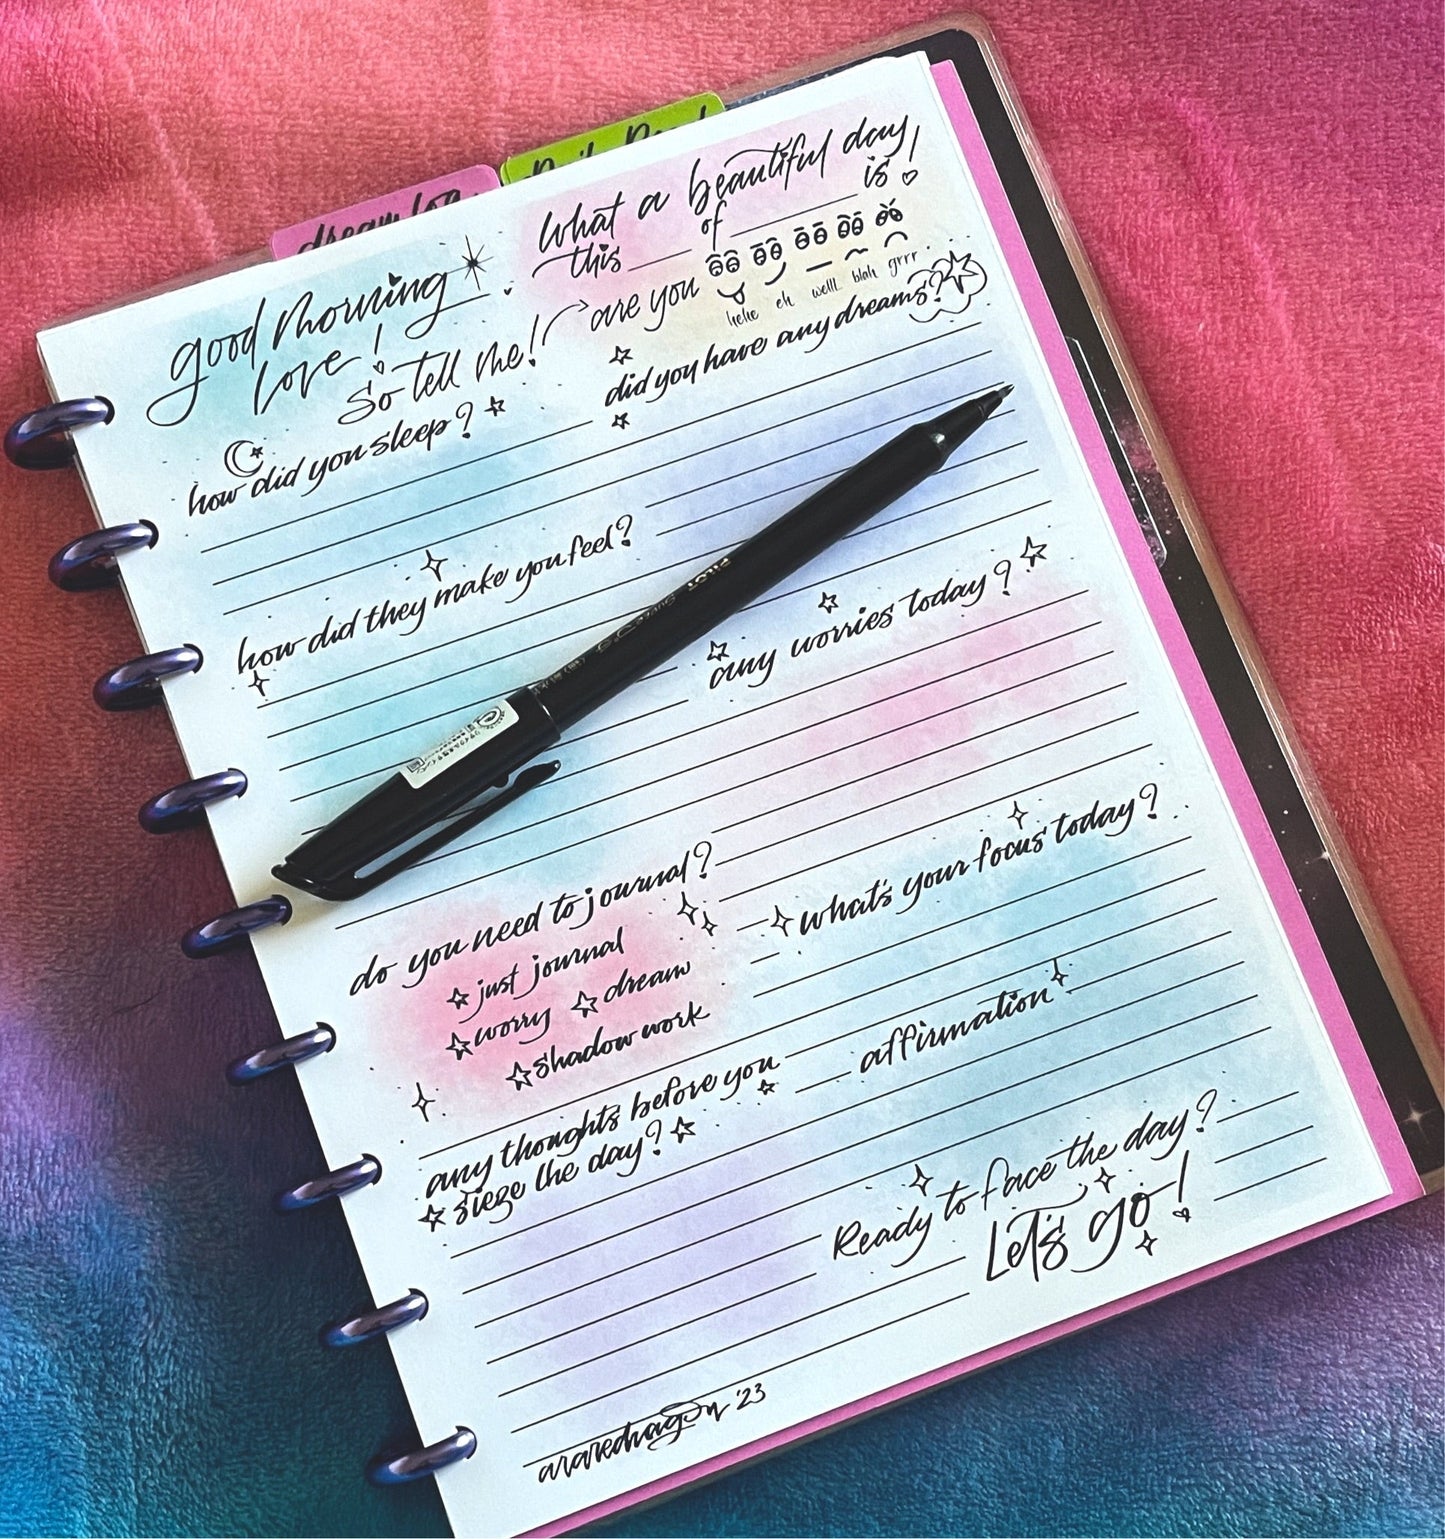 dream log
Daily
good morning
love!
What a beautiful day,
this ___ of ______ is!
So tell me!
are you
hehe eh welll blah grrr
how did you sleep?
did you have any dreams?
how did they make you feel?
any worries today?
PILOT
do you need to journal?
just journal
worry dream
shadow work
what's your focus today?
affirmation
any thoughts before you
sieze the day?
Ready to face the day?
Let's go!
'23